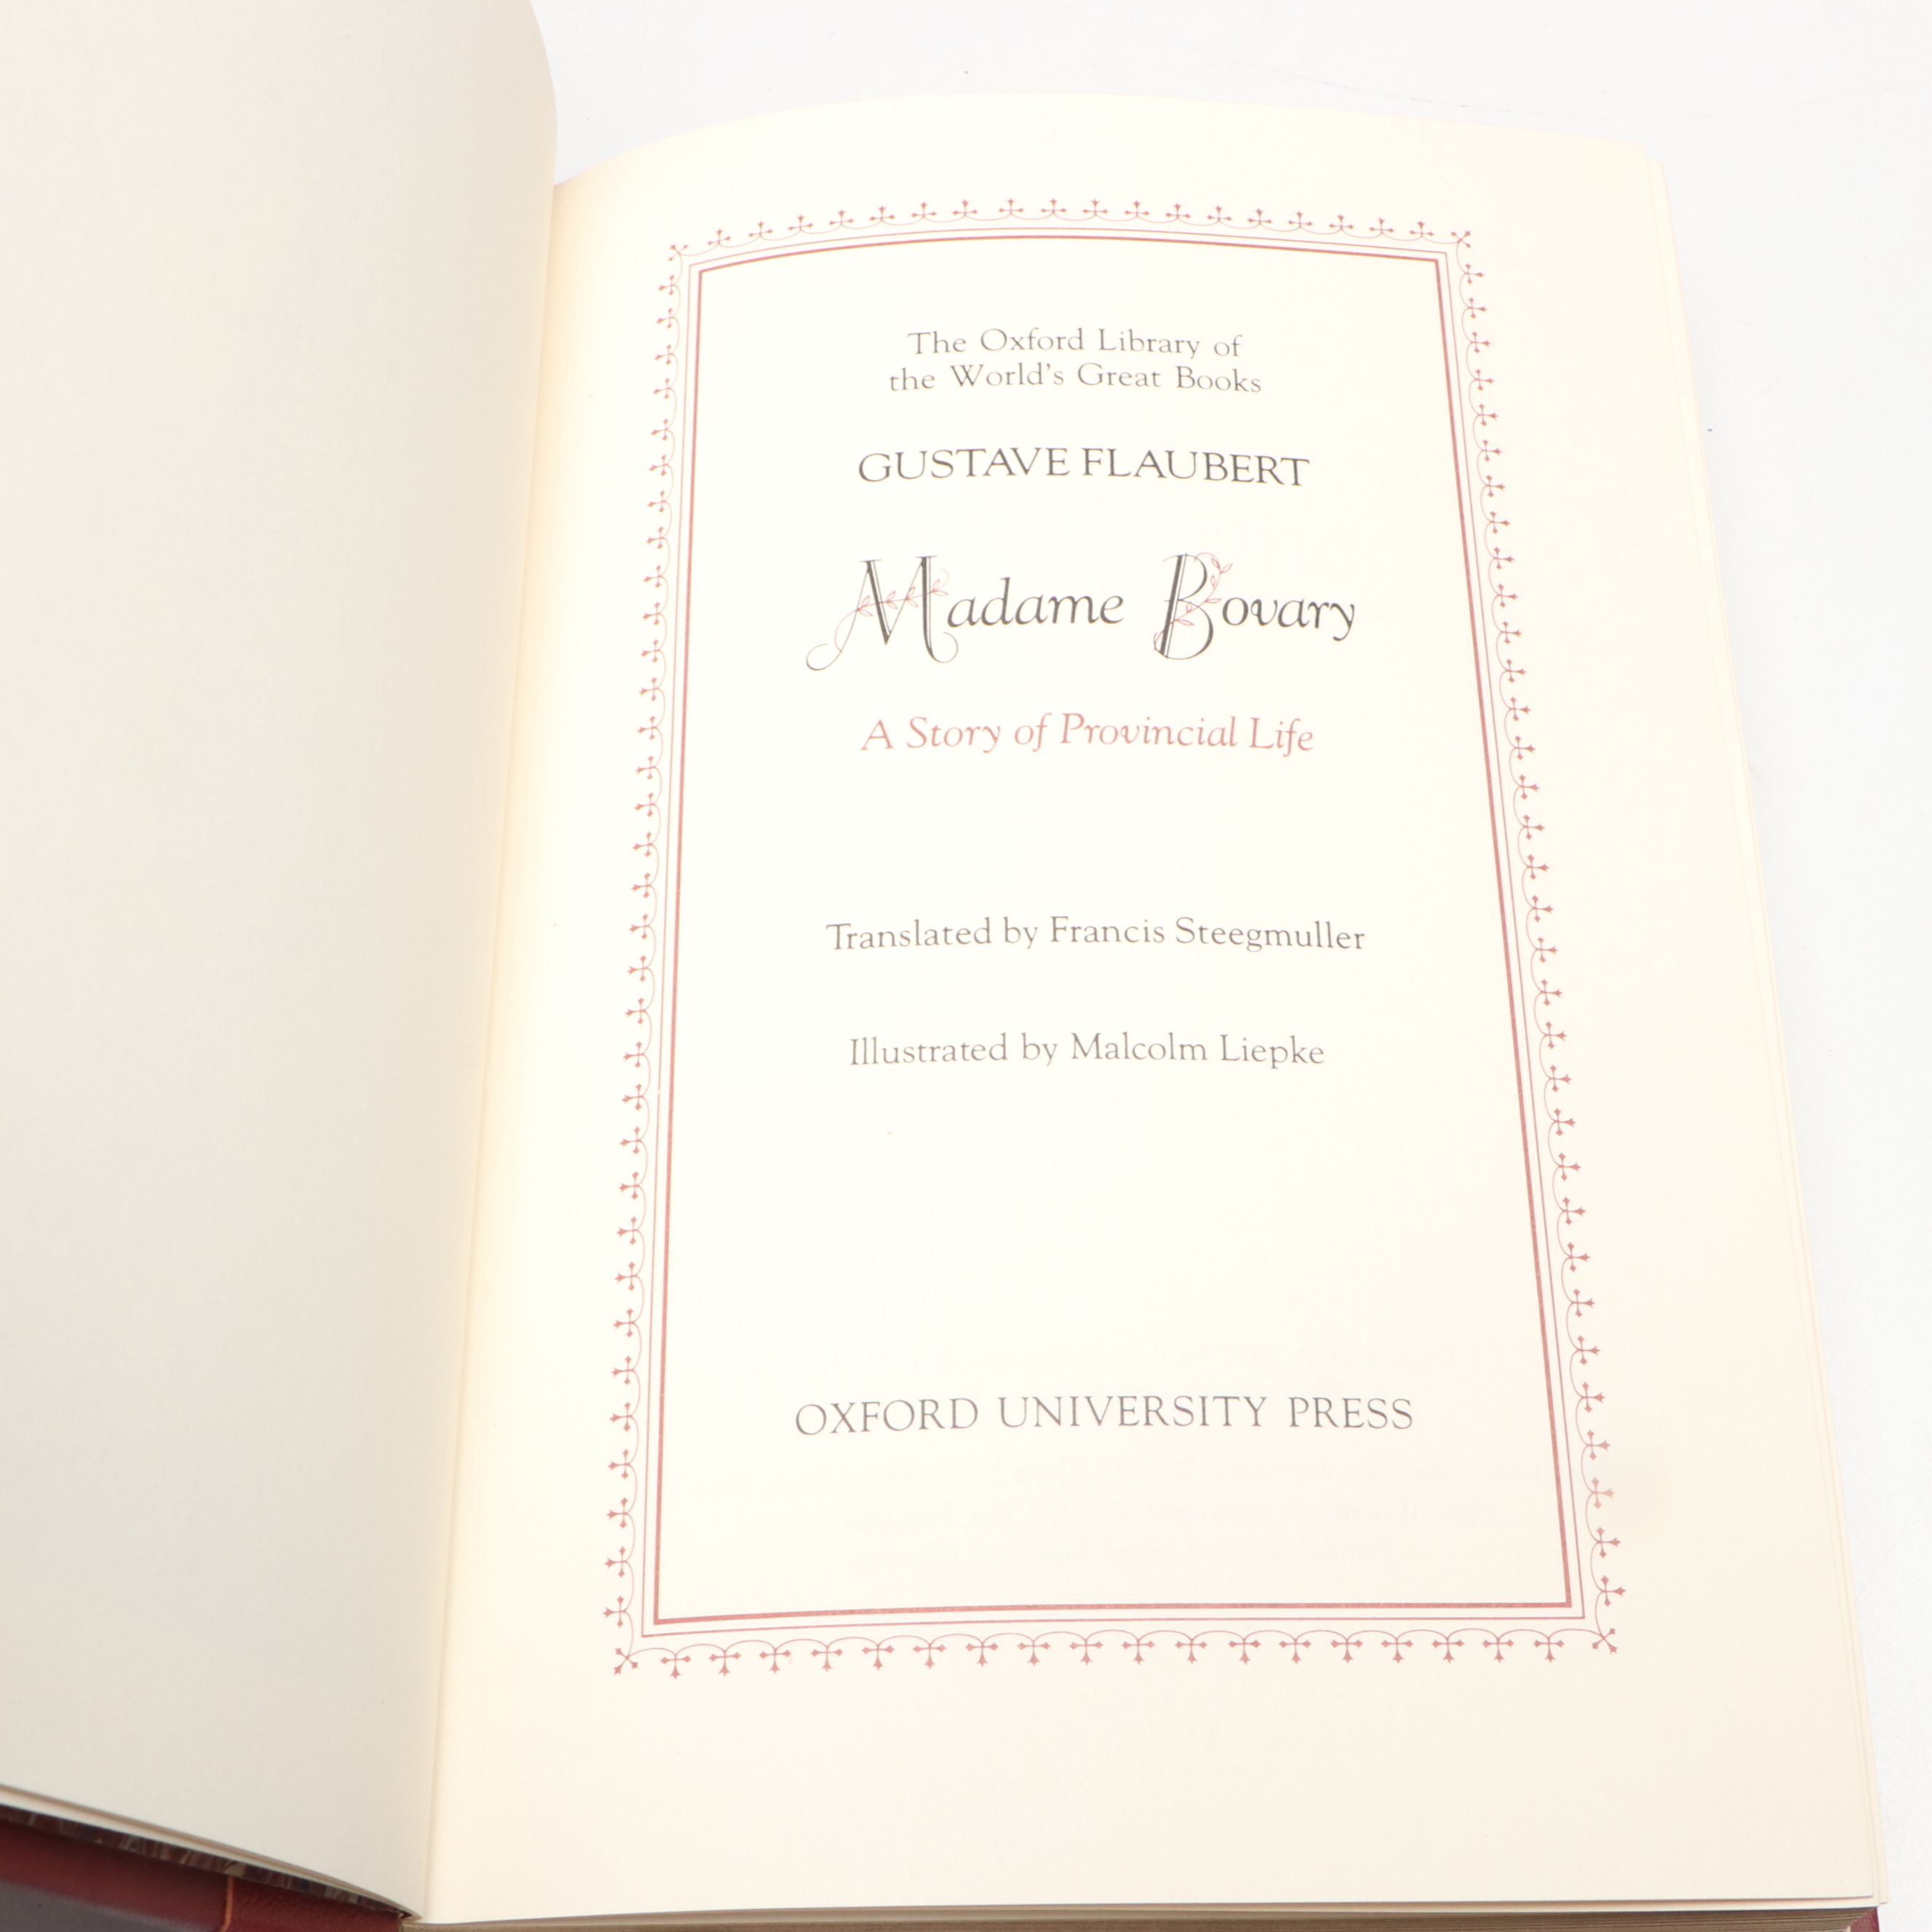 The Oxford Library of
the World's Great Books
GUSTAVE FLAUBERT
Madame Bovary
A Story of Provincial Life
Translated by Francis Steegmuller
Illustrated by Malcolm Liepke
OXFORD UNIVERSITY PRESS